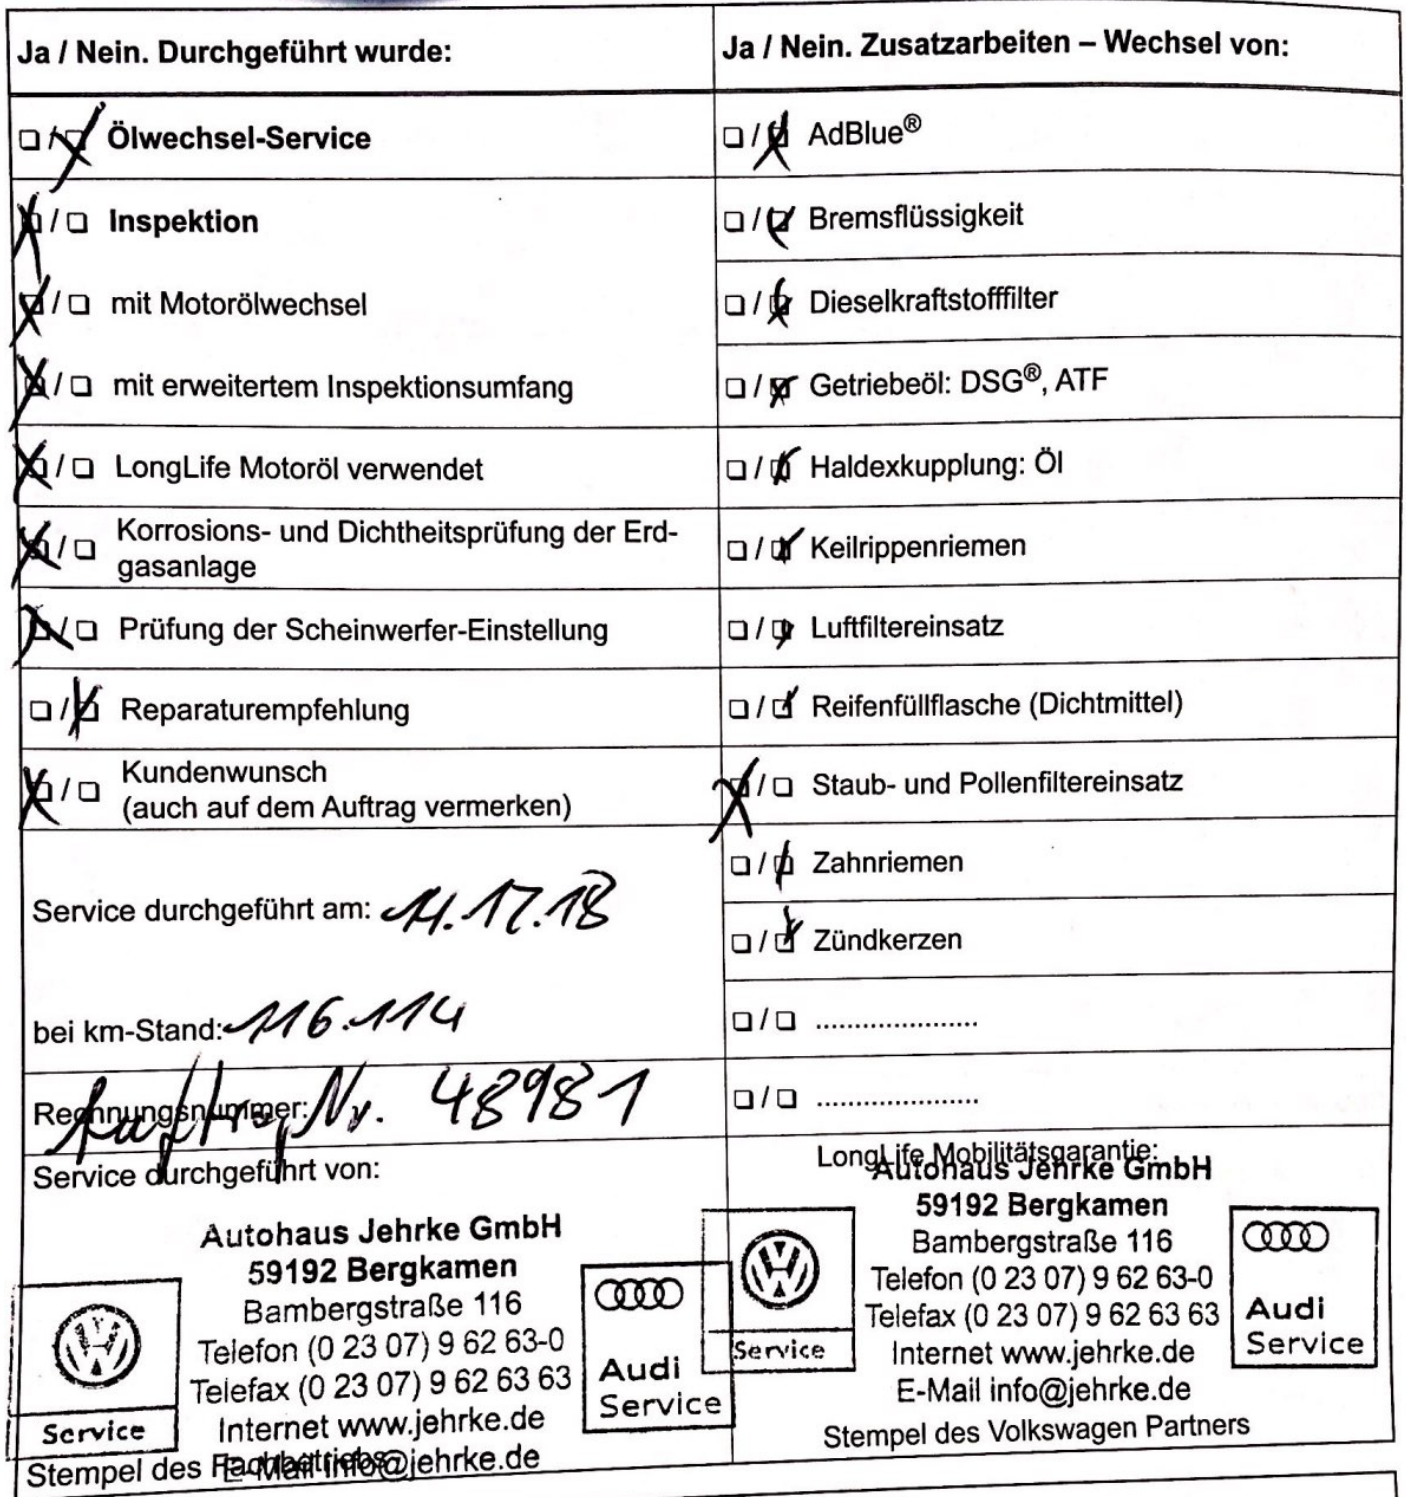 Ja / Nein. Durchgeführt wurde:
☐ / ☒ Ölwechsel-Service
☒ / ☐ Inspektion
☒ / ☐ mit Motorölwechsel
☒ / ☐ mit erweitertem Inspektionsumfang
☒ / ☐ LongLife Motoröl verwendet
☒ / ☐ Korrosions- und Dichtheitsprüfung der Erd-
gasanlage
☒ / ☐ Prüfung der Scheinwerfer-Einstellung
☐ / ☒ Reparaturempfehlung
☒ / ☐ Kundenwunsch
(auch auf dem Auftrag vermerken)
Service durchgeführt am:
bei km-Stand: 116.114
Rechnungsnummer: Auftrag Nr. 48981
Service durchgeführt von:
Autohaus Jehrke GmbH
59192 Bergkamen
Bambergstraße 116
Telefon (0 23 07) 9 62 63-0
Telefax (0 23 07) 9 62 63 63
Internet www.jehrke.de
E-Mail info@jehrke.de
Service
Audi
Service
Stempel des Fachbetriebs
Ja / Nein. Zusatzarbeiten – Wechsel von:
☐ / ☒ AdBlue®
☐ / ☒ Bremsflüssigkeit
☐ / ☒ Dieselkraftstofffilter
☐ / ☒ Getriebeöl: DSG®, ATF
☐ / ☒ Haldexkupplung: Öl
☐ / ☒ Keilrippenriemen
☐ / ☒ Luftfiltereinsatz
☐ / ☒ Reifenfüllflasche (Dichtmittel)
☒ / ☐ Staub- und Pollenfiltereinsatz
☐ / ☒ Zahnriemen
☐ / ☒ Zündkerzen
☐ / ☐ .....................
☐ / ☐ .....................
LongLife Mobilitätsgarantie:
Autohaus Jehrke GmbH
59192 Bergkamen
Bambergstraße 116
Telefon (0 23 07) 9 62 63-0
Telefax (0 23 07) 9 62 63 63
Internet www.jehrke.de
E-Mail info@jehrke.de
Service
Audi
Service
Stempel des Volkswagen Partners